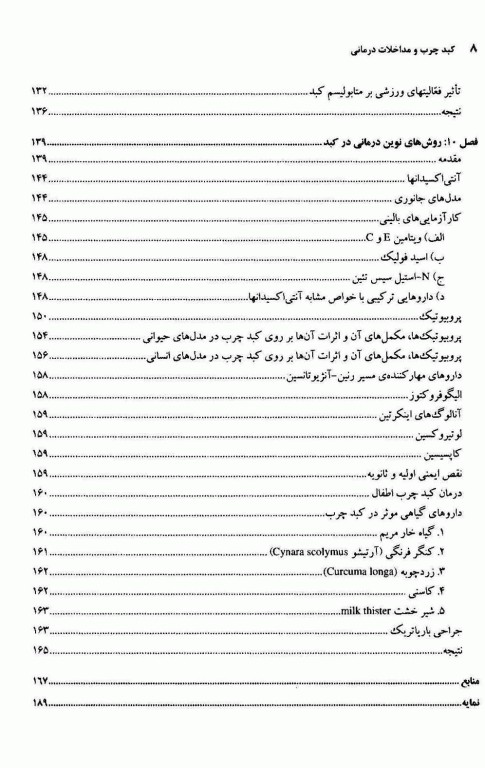 ۸ کبد چرب و مداخلات درمانی
تأثیر فعّالیتهای ورزشی بر متابولیسم کبد ۱۳۲
نتیجه ۱۳۶
فصل ۱۰: روش‌های نوین درمانی در کبد ۱۳۹
مقدمه ۱۳۹
آنتی‌اکسیدانها ۱۴۴
مدل‌های جانوری ۱۴۴
کارآزمایی‌های بالینی ۱۴۵
الف) ویتامین E و C ۱۴۵
ب) اسید فولیک ۱۴۸
ج) N-استیل سیس تئین ۱۴۸
د) داروهایی ترکیبی با خواص مشابه آنتی‌اکسیدانها ۱۴۸
پروبیوتیک ۱۵۰
پروبیوتیک‌ها، مکمل‌های آن و اثرات آن‌ها بر روی کبد چرب در مدل‌های حیوانی ۱۵۴
پروبیوتیک‌ها، مکمل‌های آن و اثرات آن‌ها بر روی کبد چرب در مدل‌های انسانی ۱۵۶
داروهای مهارکننده‌ی مسیر رنین-آنژیوتانسین ۱۵۸
الیگوفروکتوز ۱۵۸
آنالوگ‌های اینکرتین ۱۵۹
لوتیروکسین ۱۵۹
کاپسیسین ۱۵۹
نقص ایمنی اولیه و ثانویه ۱۵۹
درمان کبد چرب اطفال ۱۶۰
داروهای گیاهی موثر در کبد چرب ۱۶۰
۱. گیاه خار مریم ۱۶۰
۲. کنگر فرنگی (آرتیشو Cynara scolymus) ۱۶۱
۳. زردچوبه (Curcuma longa) ۱۶۲
۴. کاسنی ۱۶۲
۵. شیر خشت milk thister ۱۶۳
جراحی باریاتریک ۱۶۳
نتیجه ۱۶۵
منابع ۱۶۷
نمایه ۱۸۹